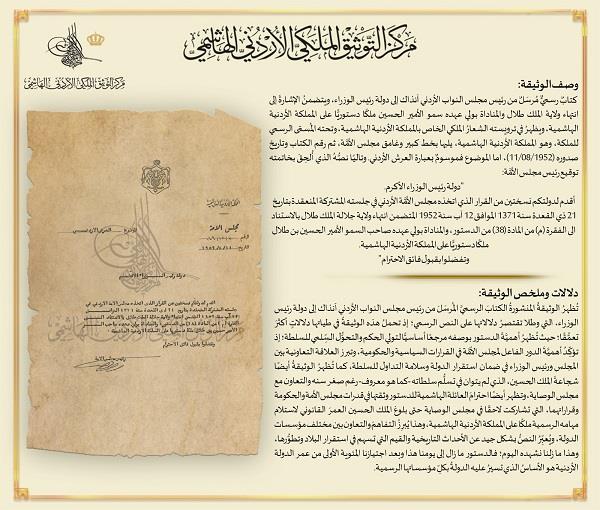 مركز التوثيق الملكي الأردني الهاشمي
مركز التوثيق الملكي الأردني الهاشمي
وصف الوثيقة:
كتابٌ رسميٌّ مُرسَلٌ من رئيس مجلس النواب الأردني آنذاك إلى دولة رئيس الوزراء، ويتضمنُ الإشارةَ إلى
انتهاء ولاية الملك طلال والمناداة بولي عهده سمو الأمير الحسين ملكًا دستوريًّا على المملكة الأردنية
الهاشمية، ويظهرُ في ترويسته الشعارُ الملكي الخاص بالمملكة الأردنية الهاشمية، وتحته المُسمى الرسمي
للمملكة، وهو المملكة الأردنية الهاشمية، يليها بخط كبير وغامق مجلس الأمّة، ثم رقم الكتاب وتاريخ
صدوره (11/08/1952)، اما الموضوع فموسومٌ بعبارة العرش الأردني. وتاليًا نصُّهُ الذي أُلحِقَ بخاتمته
توقيع رئيس مجلس الأمّة:
"دولة رئيس الوزراء الأكرم.
أقدم لدولتكم نسختين من القرار الذي اتخذه مجلس الأمّة الأردني في جلسته المشتركة المنعقدة بتاريخ
21 ذي القعدة سنة 1371 الموافق 12 آب سنة 1952 المتضمن انتهاء ولاية جلالة الملك طلال بالاستناد
الى الفقرة (م) من المادة (38) من الدستور، والمناداة بولي عهده صاحب السمو الأمير الحسين بن طلال
ملكًا دستوريًّا على المملكة الأردنية الهاشمية.
وتفضلوا بقبول فائق الاحترام"
دلالات وملخص الوثيقة:
تُظهرُ الوثيقةُ المنشورةُ الكتابَ الرسميَّ المُرسَلَ من رئيس مجلس النواب الأردني آنذاك إلى دولة رئيس
الوزراء، التي وطلا تقتصرُ دلالاتها على النص الرسمي؛ إذ تحملُ هذه الوثيقةُ في طياتها دلالاتٍ أكثرَ
تعمّقًا؛ حيث تُظهرُ أهميةَ الدستور بوصفه مرجعًا أساسيًّا لتولي الحكم والتحوُّلِ السِّلمي للسلطة؛ إذ
تؤكّدُ أهميةَ الدور الفاعل لمجلس الأمّة في القرارات السياسية والحكومية، وتبرزُ العلاقةَ التعاونية بين
المجلس ورئيس الوزراء في ضمان استقرار الدولة وسلامة التداول للسلطة، كما تُظهرُ الوثيقةُ أيضًا
شجاعةَ الملك الحسين، الذي لم يتوانَ في تسلُّم سلطاته -كما هو معروف- رغم صغر سنه والتعاون مع
مجلس الوصاية، وتظهر أيضًا احترامَ العائلة الهاشمية للدستور وثقتها في قدرات مجلس الأمّة والحكومة
وقراراتهما، التي تشاركت لاحقًا في مجلس الوصاية حتى بلوغ الملك الحسين العمرَ القانوني لاستلام
مهامه الرسمية ملكًا على المملكة الأردنية الهاشمية، وهذا يُبرزُ التفاهمَ والتعاونَ بين مختلف مؤسسات
الدولة، ويُعبّرُ النصُّ بشكل جيد عن الأحداث التاريخية والقيم التي تسهم في استقرار البلاد وتطوُّرها،
وهذا ما زلنا نشهده اليوم؛ فالدستور ما زال إلى يومنا هذا وبعد اجتيازنا المئوية الأولى من عمر الدولة
الأردنية هو الأساسُ الذي تسيرُ عليه الدولةُ بكلِّ مؤسساتها الرسمية.
مجلس الامة